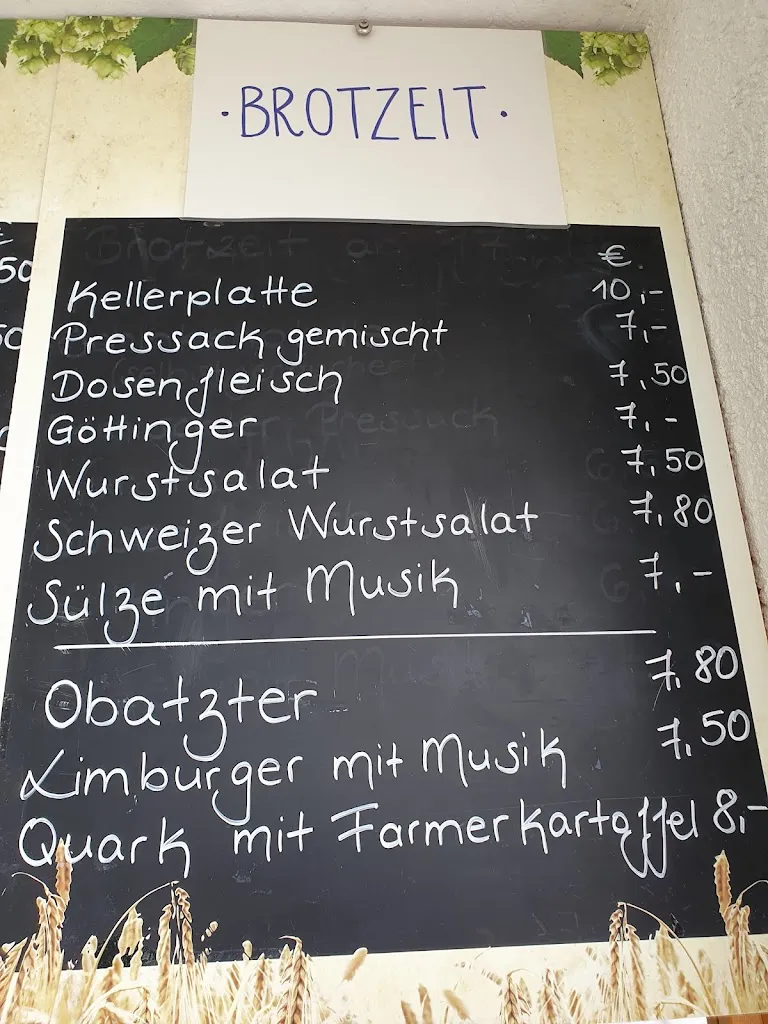 · BROTZEIT ·
€
Kellerplatte 10,-
Pressack gemischt 7,-
Dosenfleisch 7,50
Göttinger 7,-
Wurstsalat 7,50
Schweizer Wurstsalat 7,80
Sülze mit Musik 7,-
Obatzter 7,80
Limburger mit Musik 7,50
Quark mit Farmerkartoffel 8,-